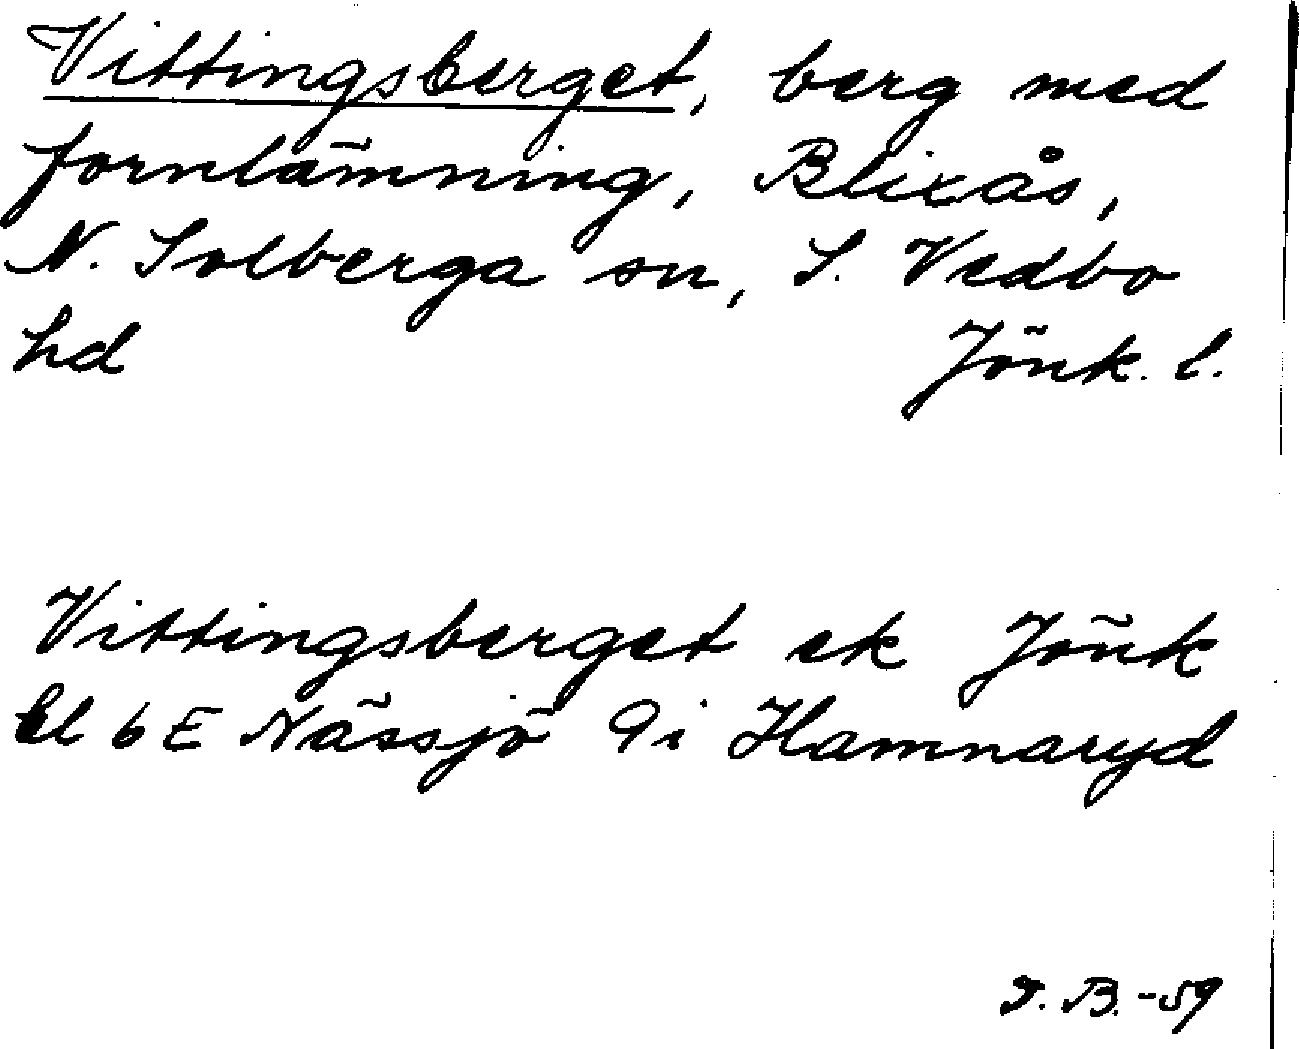 Vittingsberget, berg med
fornlämning, Blixås,
N. Solberga sn, S. Vedbo
hd Jönk. l.
Vittingsberget ek Jönk
bl 6E Nässjö 9i Hamnaryd
J. B. -59